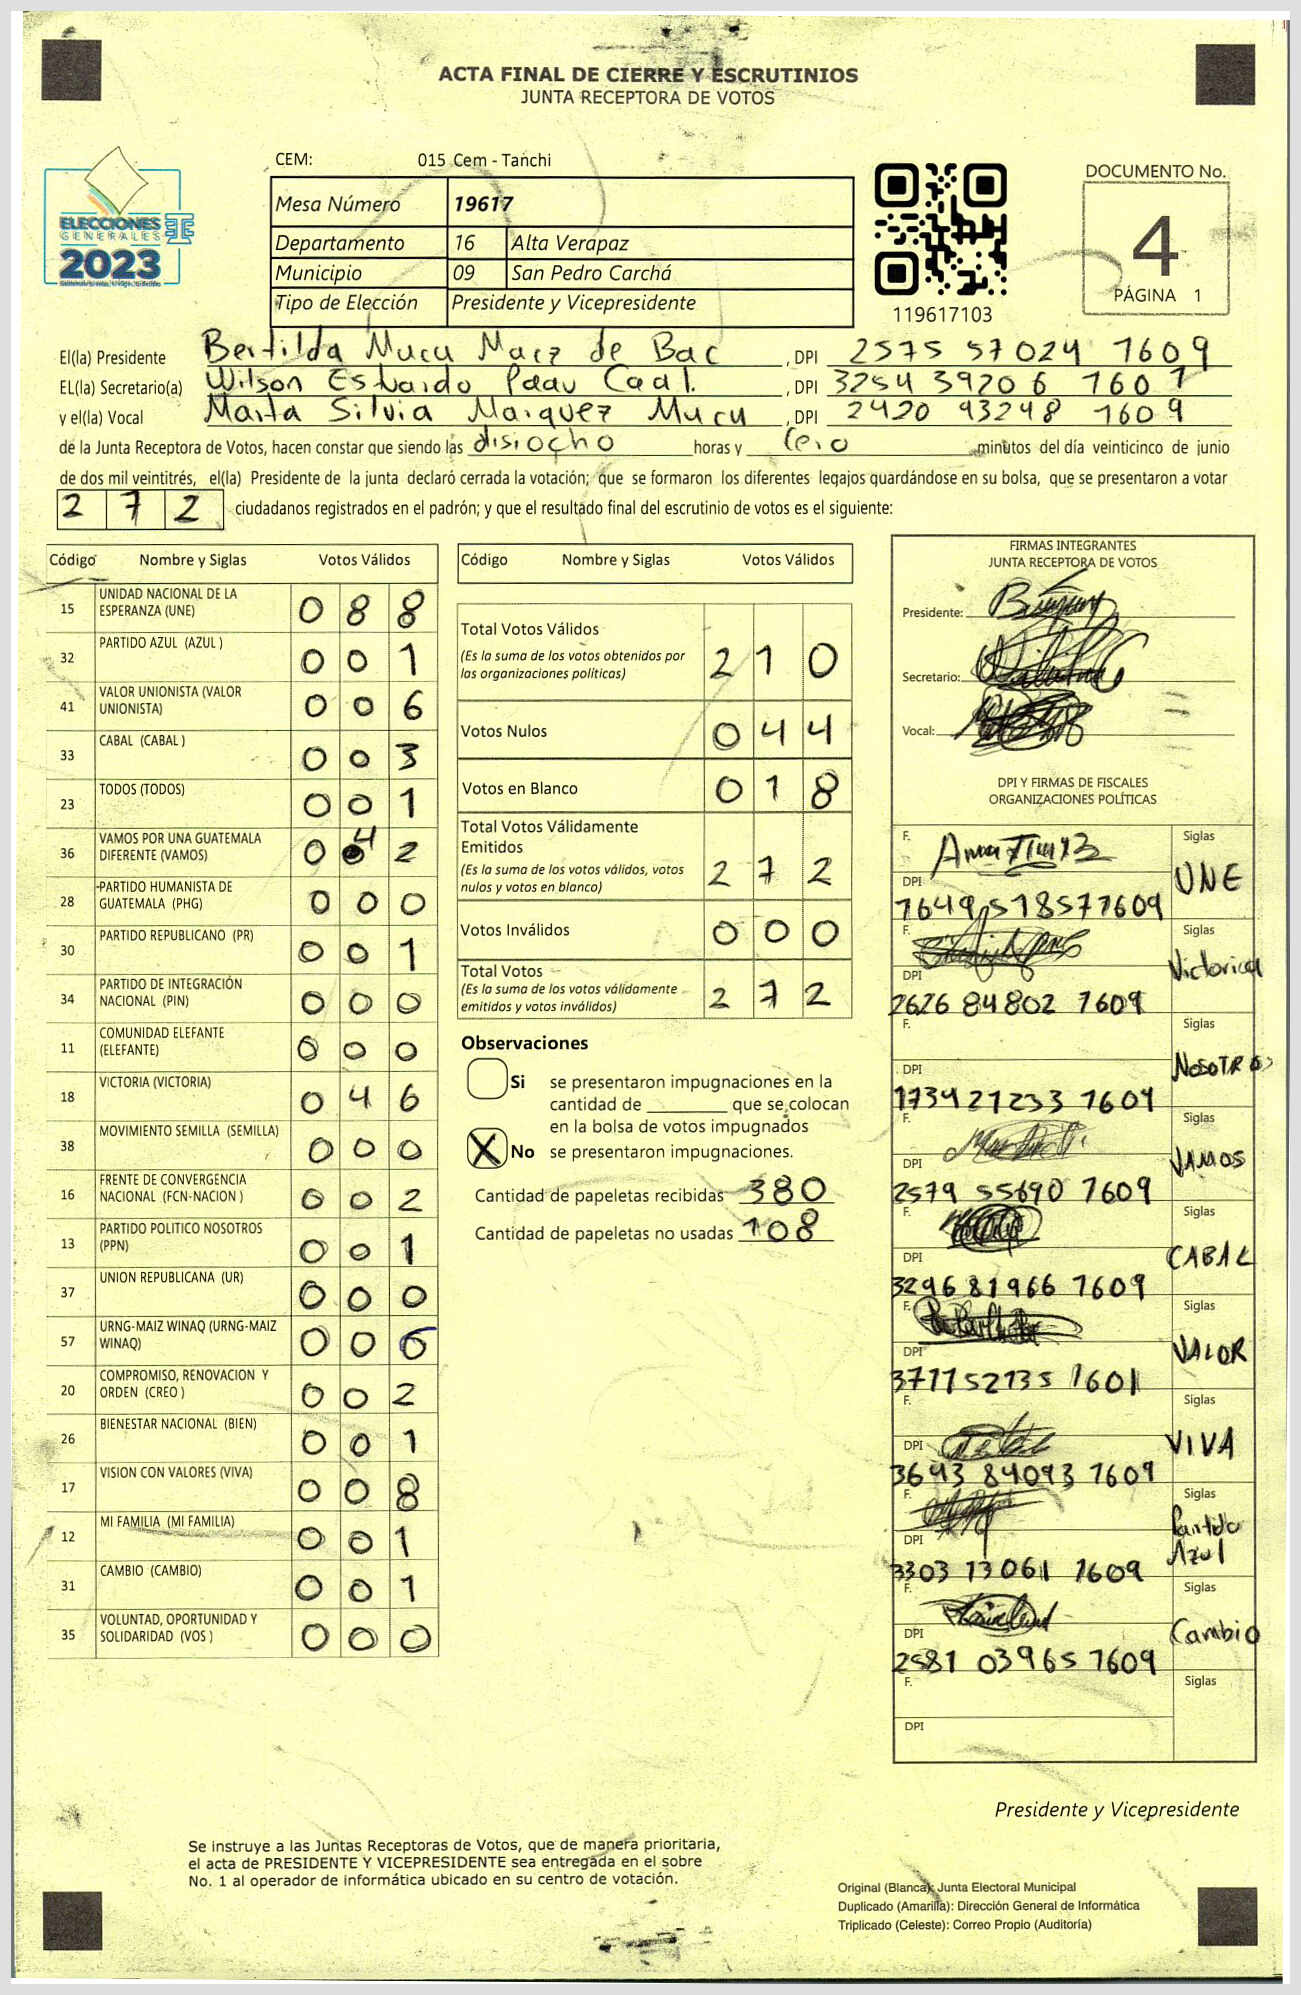 ACTA FINAL DE CIERRE Y ESCRUTINIOS
JUNTA RECEPTORA DE VOTOS
CEM: 015 Cem - Tanchi
ELECCIONES
GENERALES
2023
Mesa Número 19617
Departamento 16 Alta Verapaz
Municipio 09 San Pedro Carchá
Tipo de Elección Presidente y Vicepresidente
119617103
DOCUMENTO No.
4
PÁGINA 1
El(la) Presidente Bertilda Mucu Macz de Bac, DPI 2575 57024 1609
EL(la) Secretario(a) Wilson Estuardo Paau Caal., DPI 3254 39206 1607
y el(la) Vocal Marta Silvia Marquez Mucu, DPI 2420 93248 1609
de la Junta Receptora de Votos, hacen constar que siendo las disiocho horas y cero minutos del día veinticinco de junio
de dos mil veintitrés, el(la) Presidente de la junta declaró cerrada la votación; que se formaron los diferentes legajos guardándose en su bolsa, que se presentaron a votar
272 ciudadanos registrados en el padrón; y que el resultado final del escrutinio de votos es el siguiente:
Código Nombre y Siglas Votos Válidos
15 UNIDAD NACIONAL DE LA ESPERANZA (UNE) 0 8 8
32 PARTIDO AZUL (AZUL ) 0 0 1
41 VALOR UNIONISTA (VALOR UNIONISTA) 0 0 6
33 CABAL (CABAL ) 0 0 3
23 TODOS (TODOS) 0 0 1
36 VAMOS POR UNA GUATEMALA DIFERENTE (VAMOS) 0 4 2
28 PARTIDO HUMANISTA DE GUATEMALA (PHG) 0 0 0
30 PARTIDO REPUBLICANO (PR) 0 0 1
34 PARTIDO DE INTEGRACIÓN NACIONAL (PIN) 0 0 0
11 COMUNIDAD ELEFANTE (ELEFANTE) 0 0 0
18 VICTORIA (VICTORIA) 0 4 6
38 MOVIMIENTO SEMILLA (SEMILLA) 0 0 0
16 FRENTE DE CONVERGENCIA NACIONAL (FCN-NACION ) 0 0 2
13 PARTIDO POLITICO NOSOTROS (PPN) 0 0 1
37 UNION REPUBLICANA (UR) 0 0 0
57 URNG-MAIZ WINAQ (URNG-MAIZ WINAQ) 0 0 6
20 COMPROMISO, RENOVACION Y ORDEN (CREO ) 0 0 2
26 BIENESTAR NACIONAL (BIEN) 0 0 1
17 VISION CON VALORES (VIVA) 0 0 8
12 MI FAMILIA (MI FAMILIA) 0 0 1
31 CAMBIO (CAMBIO) 0 0 1
35 VOLUNTAD, OPORTUNIDAD Y SOLIDARIDAD (VOS ) 0 0 0
Código Nombre y Siglas Votos Válidos
Total Votos Válidos
(Es la suma de los votos obtenidos por
las organizaciones políticas) 2 1 0
Votos Nulos 0 4 4
Votos en Blanco 0 1 8
Total Votos Válidamente
Emitidos
(Es la suma de los votos válidos, votos
nulos y votos en blanco) 2 7 2
Votos Inválidos 0 0 0
Total Votos
(Es la suma de los votos válidamente
emitidos y votos inválidos) 2 7 2
Observaciones
Si se presentaron impugnaciones en la
cantidad de ________ que se colocan
en la bolsa de votos impugnados
X No se presentaron impugnaciones.
Cantidad de papeletas recibidas 380
Cantidad de papeletas no usadas 108
FIRMAS INTEGRANTES
JUNTA RECEPTORA DE VOTOS
Presidente:
Secretario:
Vocal:
DPI Y FIRMAS DE FISCALES
ORGANIZACIONES POLÍTICAS
F. Siglas UNE
DPI 1649 51857 1609
F. Siglas Victoria
DPI 2626 84802 1609
F. Siglas NOSOTROS
DPI 1734 21233 1609
F. Siglas VAMOS
DPI 2579 55690 1609
F. Siglas CABAL
DPI 3296 81966 1609
F. Siglas VALOR
DPI 3711 52135 1601
F. Siglas VIVA
DPI 3643 84093 1609
F. Siglas Partido Azul
DPI 3303 13061 1609
F. Siglas Cambio
DPI 2581 03965 1609
F. Siglas
DPI
Presidente y Vicepresidente
Se instruye a las Juntas Receptoras de Votos, que de manera prioritaria,
el acta de PRESIDENTE Y VICEPRESIDENTE sea entregada en el sobre
No. 1 al operador de informática ubicado en su centro de votación.
Original (Blanca): Junta Electoral Municipal
Duplicado (Amarilla): Dirección General de Informática
Triplicado (Celeste): Correo Propio (Auditoría)